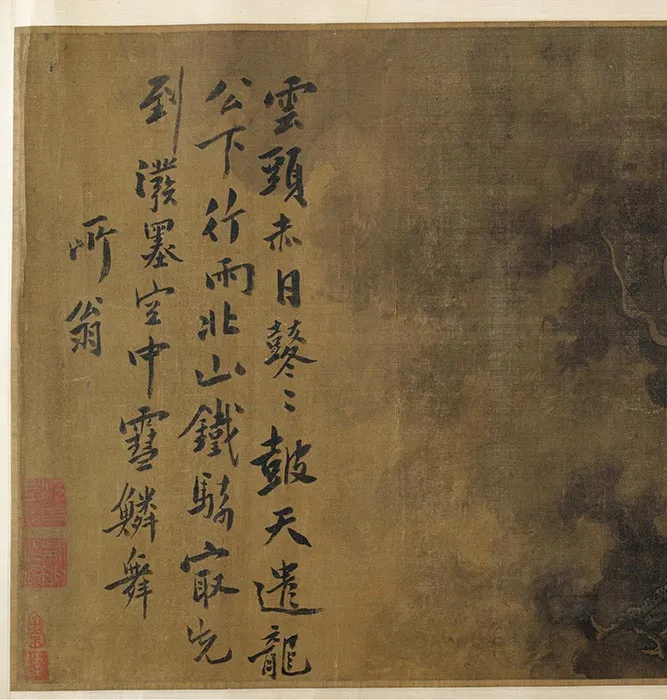 雲頭赤日鼕〻鼓天遣龍
公下行雨北山鐵騎㝡先
到潑墨空中雪鱗舞
所翁